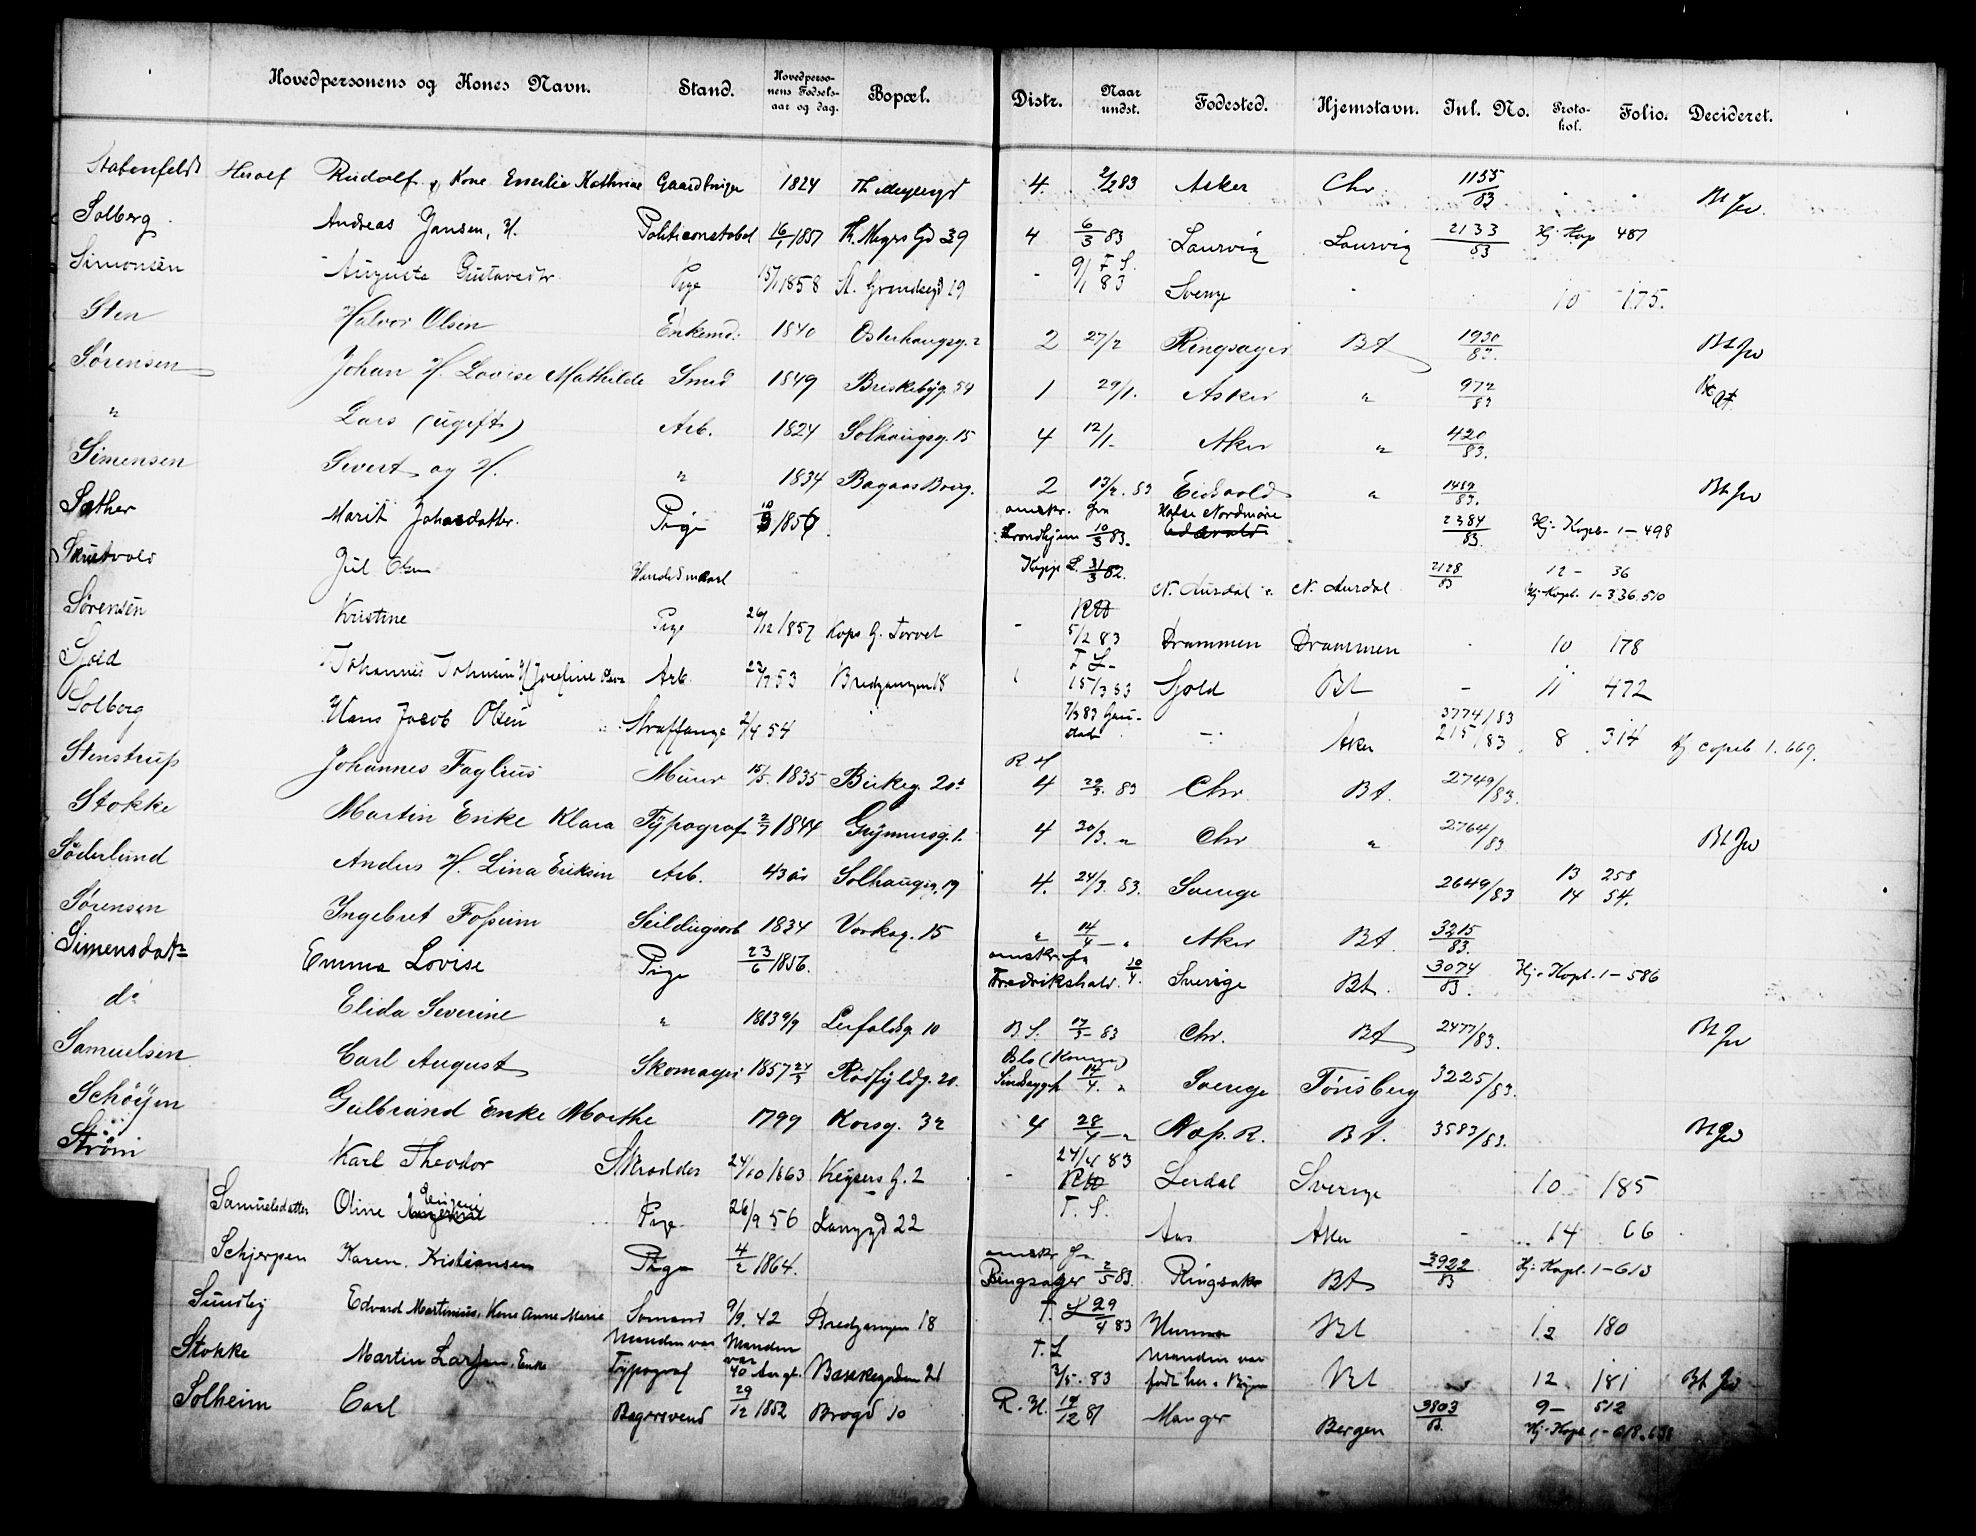 Hovedpersonens og Kones Navn. Stand. Hovedperso-nens Fødsels-aar og dag. Bopæl. Distr. Naar undst. Fødested. Hjemstavn. Inl. No. Proto-kol. Folio. Decideret.
Rudolf og Kone Emilie Kathrine 1824 4. 2/2 83 Asker Chr. 1155/83 Bt Jw.
Solberg Andreas Jansen, H. Politiconstabel 16/1 1857 Th. Meyers Gd 39 4 6/3 83 Laurvig Laurvig 2133/83 Hj. Kop 487
Simonsen Augusta Gustavsdtr. Pige 15/1 1858 St. Grendsegd 29 - 9/1 83 T. S. Sverige 10 175.
Sten Halvor Olsen Enkemd. 1840 Osterhaugsg. 2 2 27/2 Ringsager Bt 1930/83. Bt Jw
Sørensen Johan H. Lovise Mathilde Smed 1849 Briskebyg. 54 1 29/1. Asker " 972/83
" Lars (ugift) Arb. 1824 Solhaugsg. 15 4 12/1- Aker " 420/83.
Simensen Sivert og H. " 1834 Bagaas Bverg. 2 13/2. 83 Eidsvold " 1489/83. Bt Jw
Sæther Marit Johnsdatter. Pige 1856 omskr. fra Trondhjem 10/3 83. Halse Nordmøre 2384/83. Hj. Kopb. 1-498
Jul Olsen 31/3 82. N. Aurdal N. Aurdal 2128/83 12 - 36
Hj. Kopb. 1-336.510
Sørensen Kristine Pige 26/12 1857 Kops G. Torvet - RH 5/2 83 Drammen Drammen 10 178
Sjold Johannes Johnsen H Josefine Arb. 53 Bredgangen 18 1 T. L. 15/3 83 Sjold Bt - 11 472
Solberg Hans Jacob Olsen Straffange 2/4 54 7/3 83 Gaustad -:- Aker 3774/83 215/83 8 314 Hj copieb 1. 669.
Stenstrup Johannes Faglius Murer 15/5. 1835 Birkeg. 20 R H 4 29/3. 83 Chr Bt. 2749/83.
Stokke Martin Enke Klara Typograf 2/7 1844 Grynnersg. 1. 4 30/3. " Chr " 2764/83 Bt Jw
Søderlund Anders H. Lina Eriksen Arb. 43 år Solhaugsg. 19 4. 24/3. 83. Sverige 2649/83 13 258
14 54.
Sørensen Ingebret Fossum Seildugsarb 1834 Vorkag. 15 " 14/4 - " Aker Bt. 3215/83.
Simensdatr Emma Lovise Pige 23/6 1856. omskr. fra Fredrikshald. 10/4. Sverige Bt. 3074/83. Hj. Kopb. 1-586
do Elida Severine " 1863 9/9 Leifaldsg. 10 B. S. 17/3- 83 Chr. Bt 2477/83. Bt Jw
Samuelsen Carl August Skomager 1857 24/3 Rødfyldg. 20. 14/4. " Sverige Tønsberg 3225/83.
Schøyen Gulbrand Enke Marthe 1799 Korsg. 32 4 28/4 - " Næs. R. Bt. 3583/83. Bt Jw
Strøm Karl Theodor Skrædder 24/10 1863 Keysers G. 2 - 24/4 83 RH Lerdal Sverige 10 185
Samuelsdatter Oline Pige 26/9 56 Langgd 22 T. S. Aas Aker - 14 66
Schjerpen Karen Kristiansen Pige 4/2 1864. omskr fra Ringsager 2/5 83. Ringsaker Bt 3922/83 Hj. Kopb. 1-613
Sundby Edvard Martinius, Kone Anne Marie Sømand 9/9. 42 Bredgangen 18 T. L 29/4 83 Hurum Bt 12 180
Stokke Martin Larssen, Enke Manden var Typograf Manden var 40 Aar gl. Bakkegaden 21 T. L 3/5. 83 Manden var født her i Byen Bt 12 181 Bt Jw
Solheim Carl Bagersvend 29/12 1852 Brogd 10 R. H. 19/12 81 Manger Bergen 3803/83. 9- 512
Hj. Kopb 1-618.638